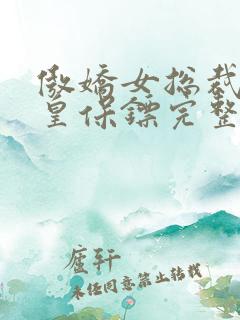 傲娇女总裁
皇保镖完整
庐轩
未经同意禁止转载